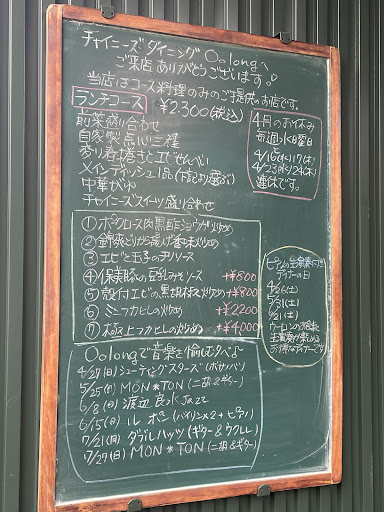 チャイニーズダイニング Oolongへ
ご来店ありがとうございます。
当店はコース料理のみのご提供のお店です。
ランチコース ¥2,300(税込)
前菜盛り合わせ
自家製点心三種
春巻きとエビせんべい
メインディッシュ1品(下記より選ぶ)
中華びゅ
チャイニーズスイーツ盛り合わせ
4月のお休み
毎週水曜日
と
4/16(水)17(木)
4/23(水)24(木)
連休です。
① ポークロース肉黒酢ショウガ炒め
②
③ エビと玉子のチリソース
④ 豚の豆豉みそソース +¥800
⑤ 殻付エビの黒胡椒炒め +¥800
⑥ ミニフカヒレの炒め +¥2200
⑦ 極上フカヒレの炒め +¥4,000
ピアノの生演奏付き
ディナーの日
4/26(土)
5/31(土)
6/21(土)
ウーロンのお料理と
生演奏が楽しめる
お得なディナーです
Oolongで音楽を愉しむ夕べ♪
4/27(日) シューティングスターズ(ボサノバ)
5/25(日) MON*TON (二胡&ギター)
6/8(日) 渡辺 Jazz
6/15(日) ル ポン (バイオリン×2+ピアノ)
7/21(月) ダブルハッツ(ギター&ウクレレ)
7/29(日) MON*TON (二胡&ギター)